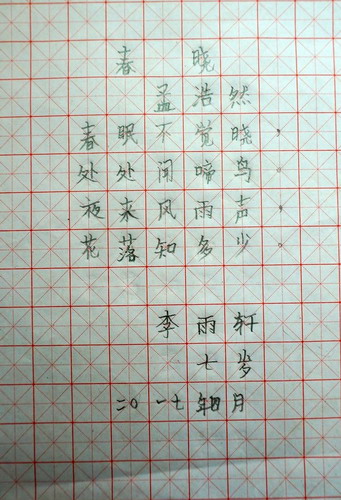 春晓
孟浩然
春眠不觉晓，
处处闻啼鸟。
夜来风雨声，
花落知多少。
李雨轩
七岁
二〇一七年四月